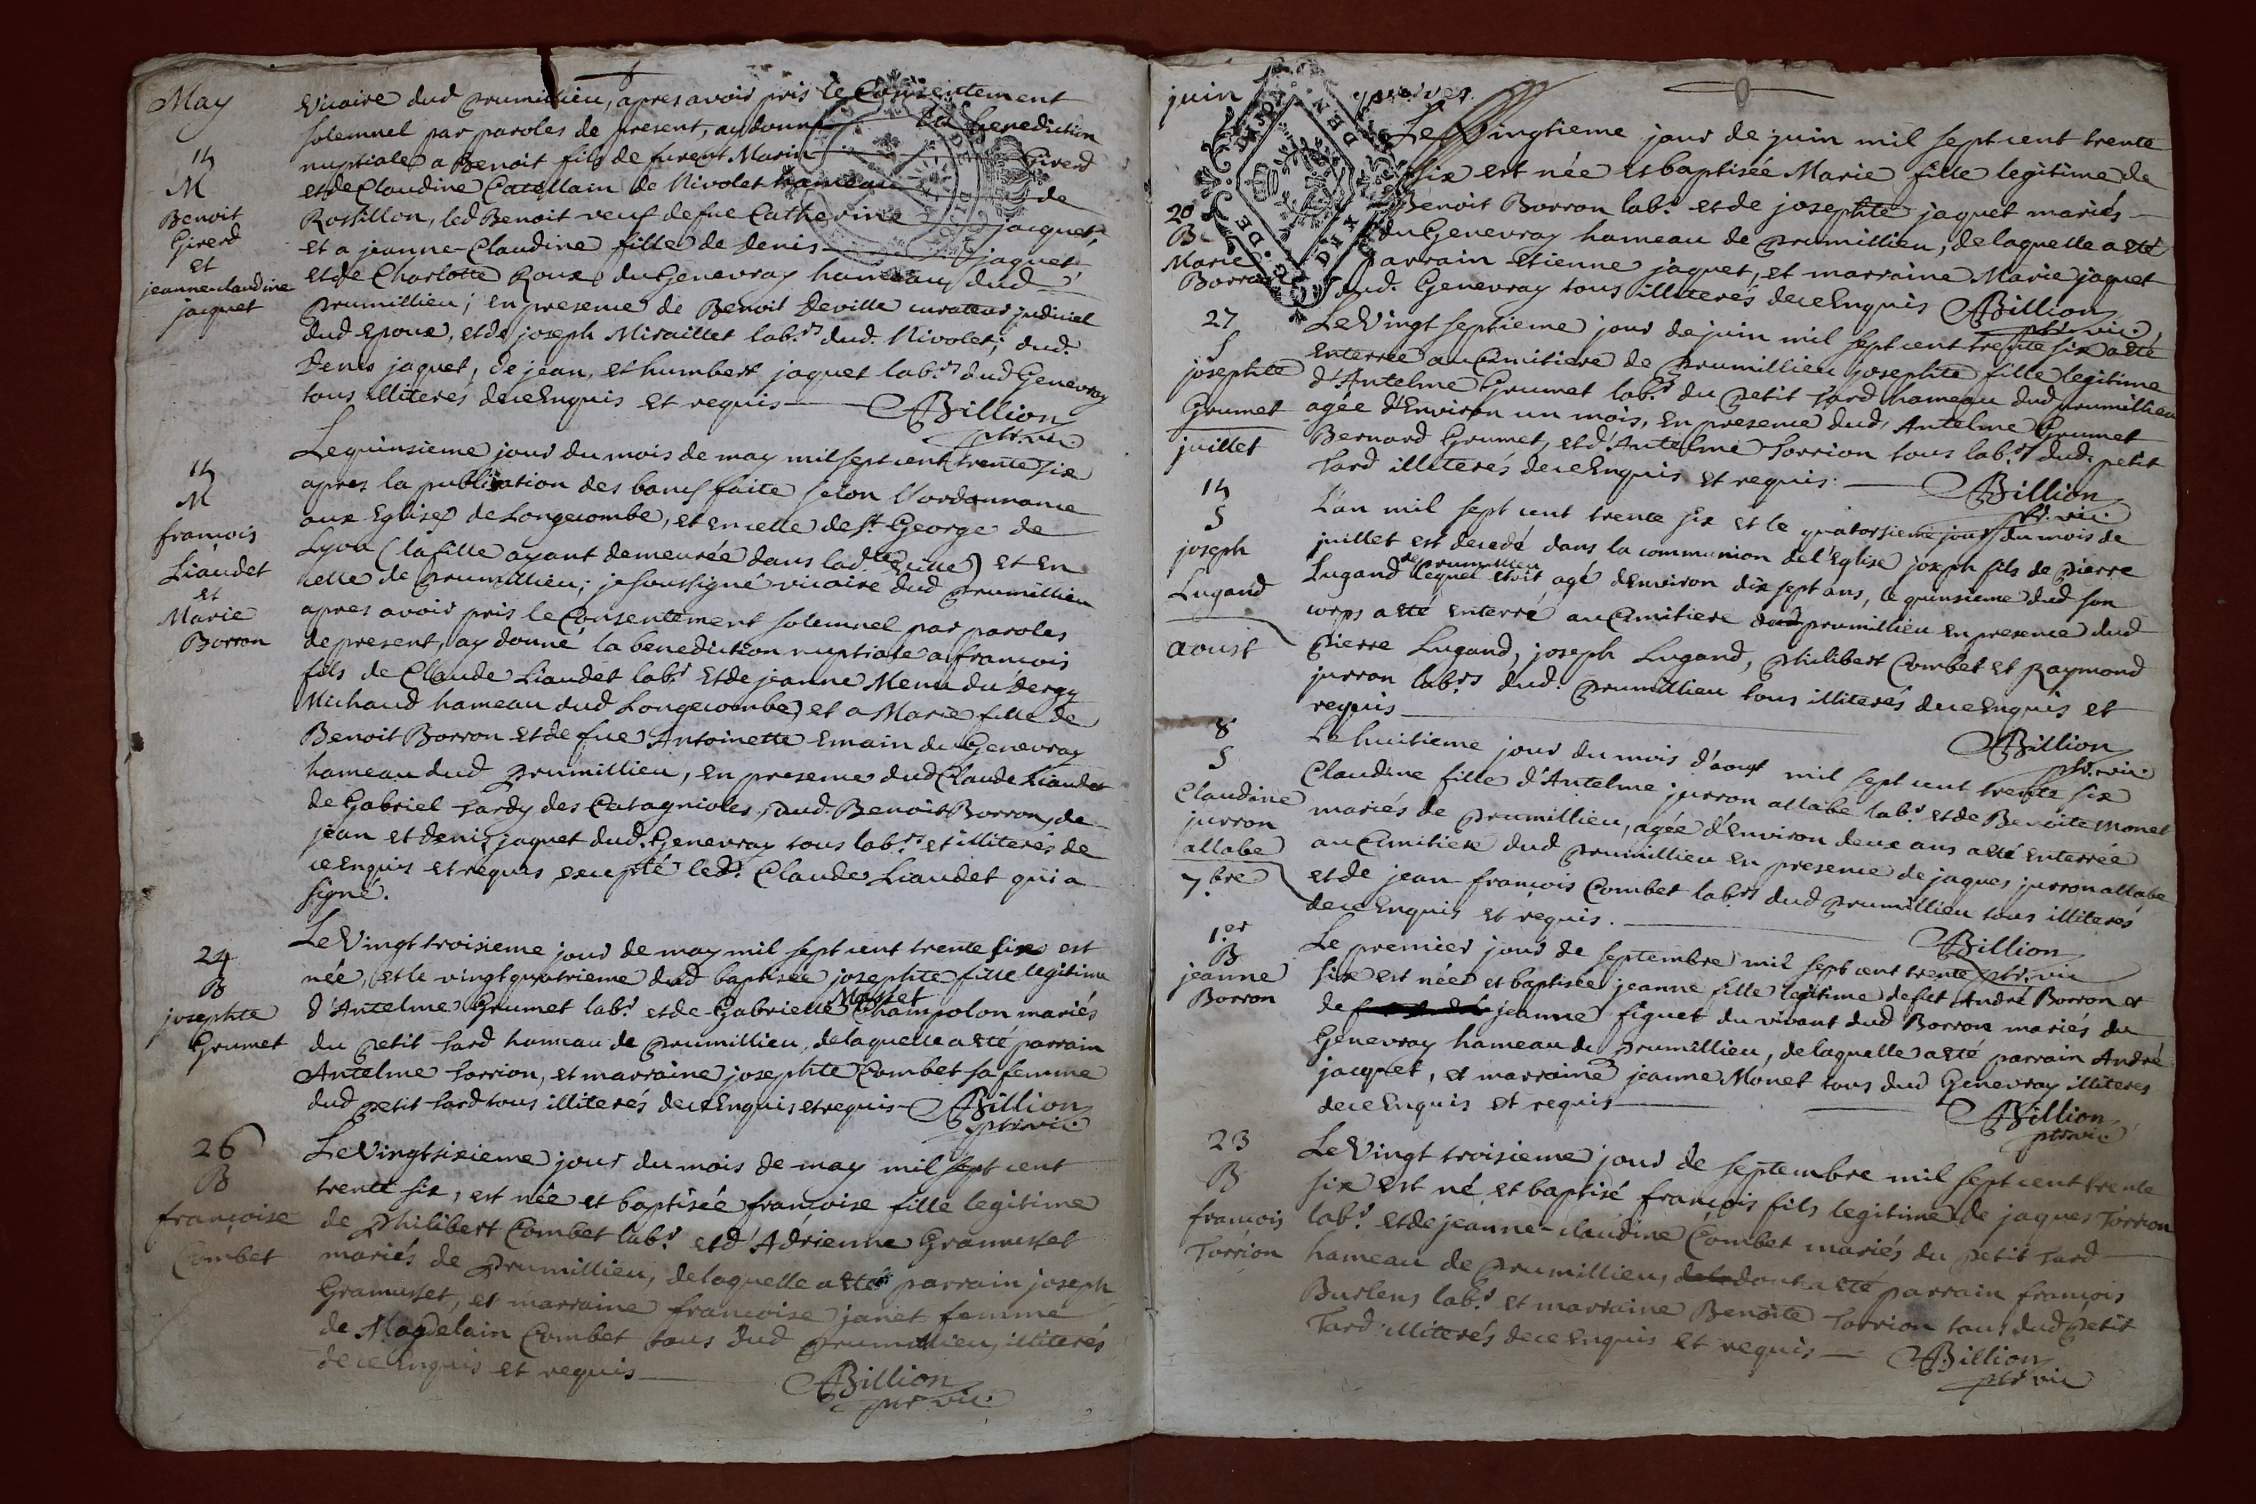 May
Vicaire dud prumillieu, apres avoir pris le Consentement
solemnel par paroles de present, ay donné la benediction
nuptiale a Benoit fils de Marin Girerd
et de Claudine Catellain de Nivolet hameau de
Rossillon, led Benoit veuf de fue Catherine jacquet,
et a jeanne-Claudine fille de Denis jaquet
et de Charlotte Roux du Genevray hameau dud
prumillieu; en presence de Benoit Deville curateur judiciel
dud Epoux, et de joseph Miraillet lab.rs dud. Nivolet; dud.
Denis jaquet, de jean, et humbert jaquet lab.rs dud Genevray
tous illiterés de ce Enquis et requis Billion
ptr. vic.
M
Benoit
Girerd
et
jeanne-claudine
jaquet
Le quinsieme jour du mois de may mil sept cent trente six
apres la publication des bancs faite selon l'ordonnance
aux Eglises de Longecombe, et en celle de St. George de
Lyon (la fille ayant demeurée dans lad.te ville) et en
celle de prumillieu; je soussigné vicaire dud prumillieu
apres avoir pris le Consentement solemnel par paroles
de present, ay donné la benediction nuptiale a françois
fils de Claude Liaudet lab.r et de jeanne Menu du dergy
Michaud hameau dud Longecombe, et a Marie fille de
Benoit Borron et de fue Antoinette Emain du Genevray
hameau dud prumillieu, en presence dud Claude Liaudet
de Gabriel tardy des Catagnioles, dud. Benoit Borron, de
jean et denis jaquet dud. Genevray tous lab.rs et illiterés de
ce enquis et requis excepté led. Claude Liaudet qui a
signé.
M
françois
Liaudet
et
Marie
Borron
Le Vingt troisieme jour de may mil sept cent trente six est
née, et le vingt quatrieme dud baptisée josephte fille legitime
d'Antelme Grumet lab.r et de Gabrielle Champolon mariés
du petit tard hameau de prumillieu, de laquelle a eté parrain
Antelme torrion, et marraine josephte Combet sa femme
dud petit tard tous illiterés de ce Enquis et requis Billion
ptr. vic.
24
B
josephte
Grumet
Le Vingt sixieme jour du mois de may mil sept cent
trente six, est née et baptisée françoise fille legitime
de philibert Combet lab.r et d'Adrienne Gramusset
mariés de prumillieu, de laquelle a eté parrain joseph
Gramusset, et marraine françoise janet femme
de Magdelain Combet tous dud prumillieu illiterés
de ce enquis et requis
Billion
ptr. vic.
26
B
françoise
Combet
juin
Le Vingtieme jour de juin mil sept cent trente
six est née et baptisée Marie fille legitime de
Benoit Borron lab.r et de josephte jaquet mariés
du Genevray hameau de prumillieu, de laquelle a eté
parrain etienne jaquet, et marraine Marie jaquet
dud. Genevray tous illiterés de ce Enquis Billion
ptr. vic.
20
B
Marie
Borron
Le Vingt septieme jour de juin mil sept cent trente six a eté
enterrée au Cimitiere de prumillieu josephte fille legitime
d'Antelme Grumet lab.r du petit tard hameau dud prumillieu
agée d'Environ un mois, en presence dud. Antelme Grumet
Bernard Grumet, et d'Antelme Torrion tous lab.rs dud. petit
tard illiterés de ce Enquis et requis. Billion
ptr. vic.
27
S
josephte
Grumet
juillet
L'an mil sept cent trente six et le quatorsieme jour du mois de
juillet est decedé dans la communion de l'Eglise joseph fils de pierre
Lugand de prumillieu lequel etoit agé d'Environ dix sept ans, le quinsieme dud son
corps a eté enterré au Cimitiere dud prumillieu en presence dud
Pierre Lugand, joseph Lugand, Philibert Combet et Raymond
jurron lab.rs dud. prumillieu tous illiterés de ce Enquis et
requis
Billion
ptr. vic.
S
joseph
Lugand
aoust
Le huitieme jour du mois d'aoust mil sept cent trente six
Claudine fille d'Antelme jurron allabe lab.r et de Benoite Monet
mariés de prumillieu, agée d'Environ deux ans a eté enterrée
au Cimitiere dud prumillieu en presence de jaques jurron allabe
et de jean françois Combet lab.rs dud prumillieu tous illiterés
de ce Enquis et requis.
Billion
ptr. vic
8
S
Claudine
jurron
allabe
7.bre
Le premier jour de septembre mil sept cent trente
six est née et baptisée jeanne fille legitime de fut André Borron et
de jeanne figuet du vivant dud Borron mariés du
Genevray hameau de prumillieu, de laquelle a eté parrain André
jacquet, et marraine jeanne Monet tous dud Genevray illiteres
de ce Enquis et requis
Billion
ptr. vic.
1.er
B
jeanne
Borron
Le Vingt troisieme jour de septembre mil sept cent trente
six est né et baptisé françois fils legitime de jaques Torrion
lab.r et de jeanne-claudine Combet mariés du petit tard
hameau de prumillieu, dont a eté parrain françois
Burlens lab.r et marraine Benoite Torrion tous dud petit
Tard illiterés de ce Enquis et requis Billion
ptr. vic
23
B
françois
Torrion